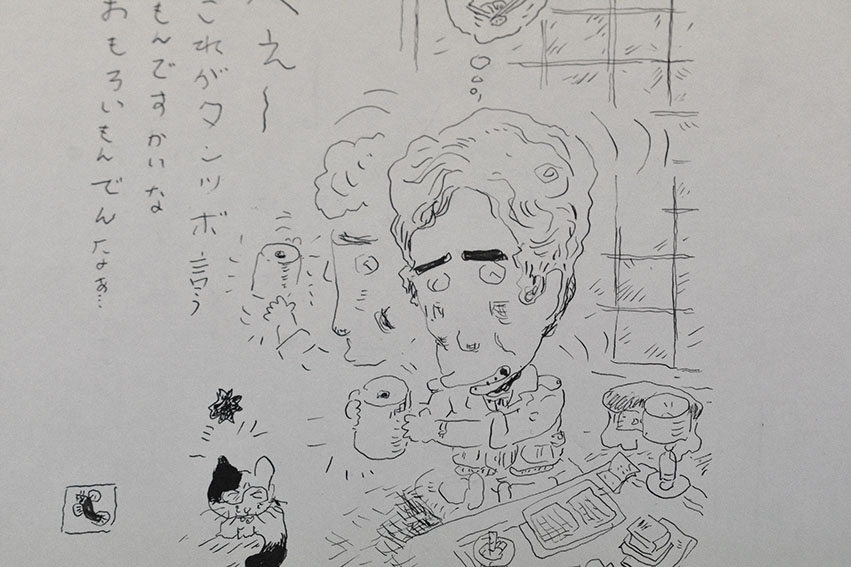 へえ〜
これがタンツボ言う
もんですかいな
おもろいもんでんなぁ…